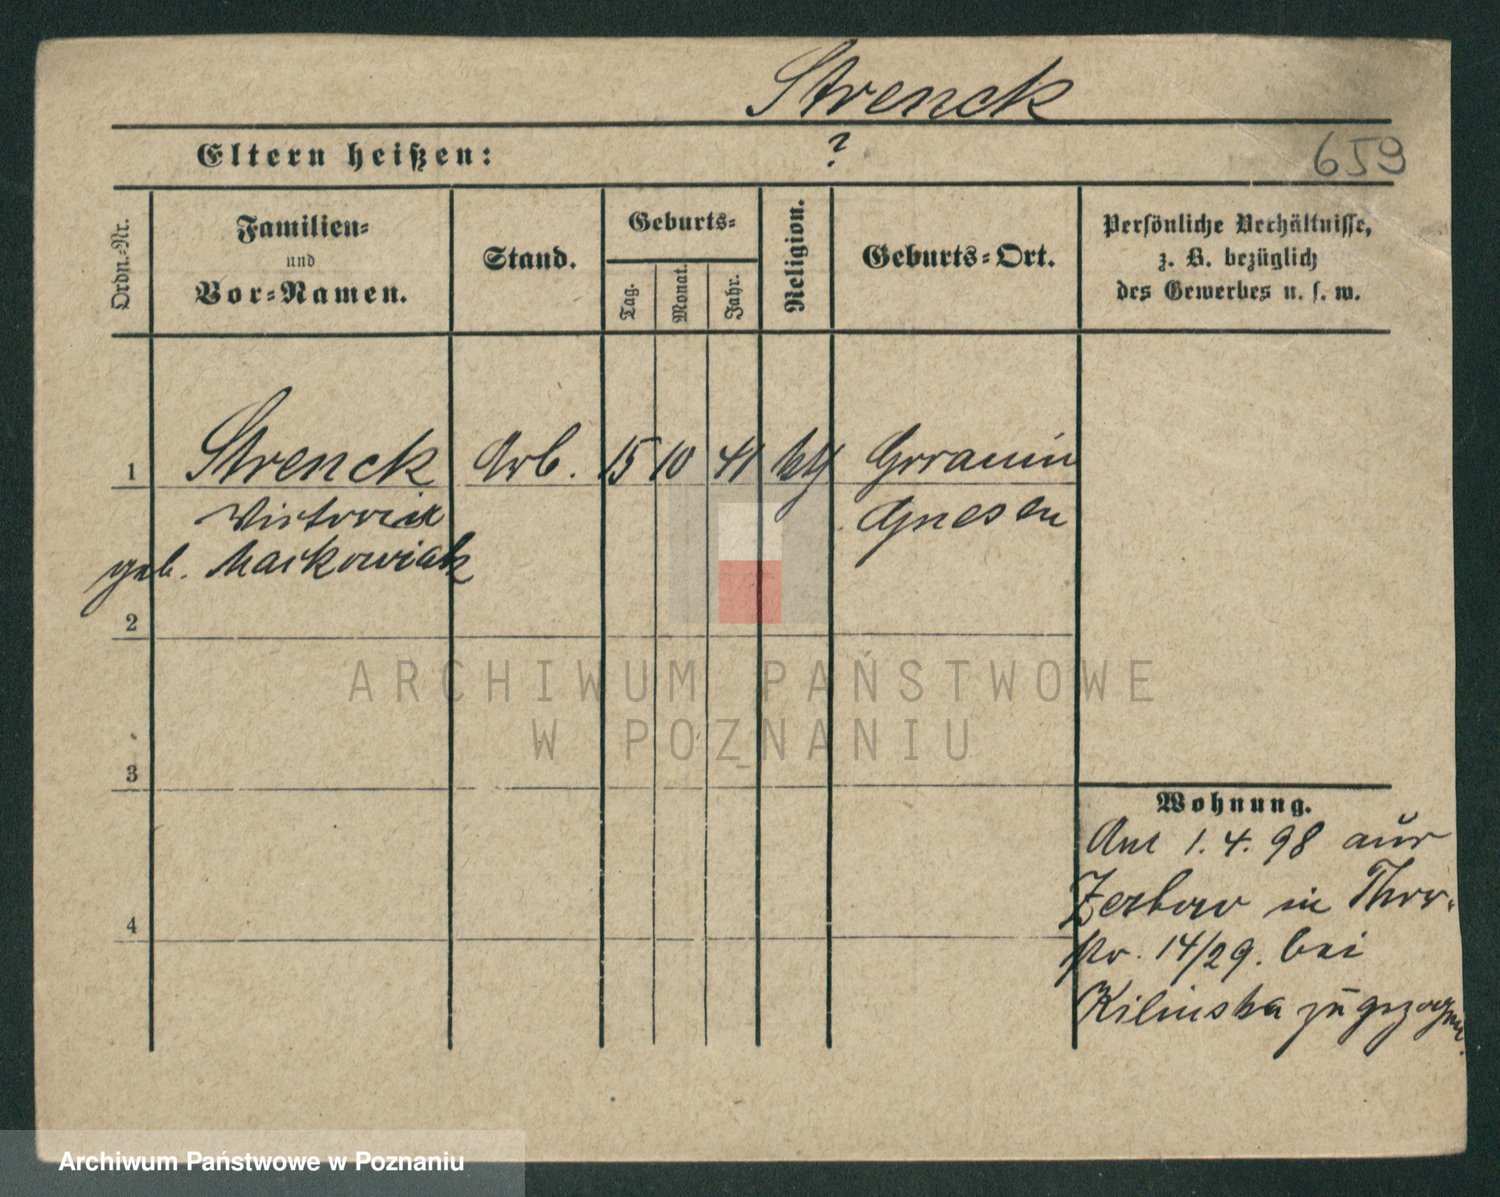 Strenck
Eltern heißen: ?
659
Ordn.-Nr.
Familien-
und
Vor-Namen.
Stand.
Geburts-
Tag.
Monat.
Jahr.
Religion.
Geburts-Ort.
Persönliche Verhältnisse,
z. B. bezüglich
des Gewerbes u. s. w.
1 Strenck Arb. 15 10 41
Victoria Gnesen
geb. Markowiak
2
ARCHIWUM PAŃSTWOWE
W POZNANIU
3
Wohnung.
Am 1.4.98 aus
Zerkow in Thor-
str. 14/29. bei
Kilinska zugezogen.
4
Archiwum Państwowe w Poznaniu